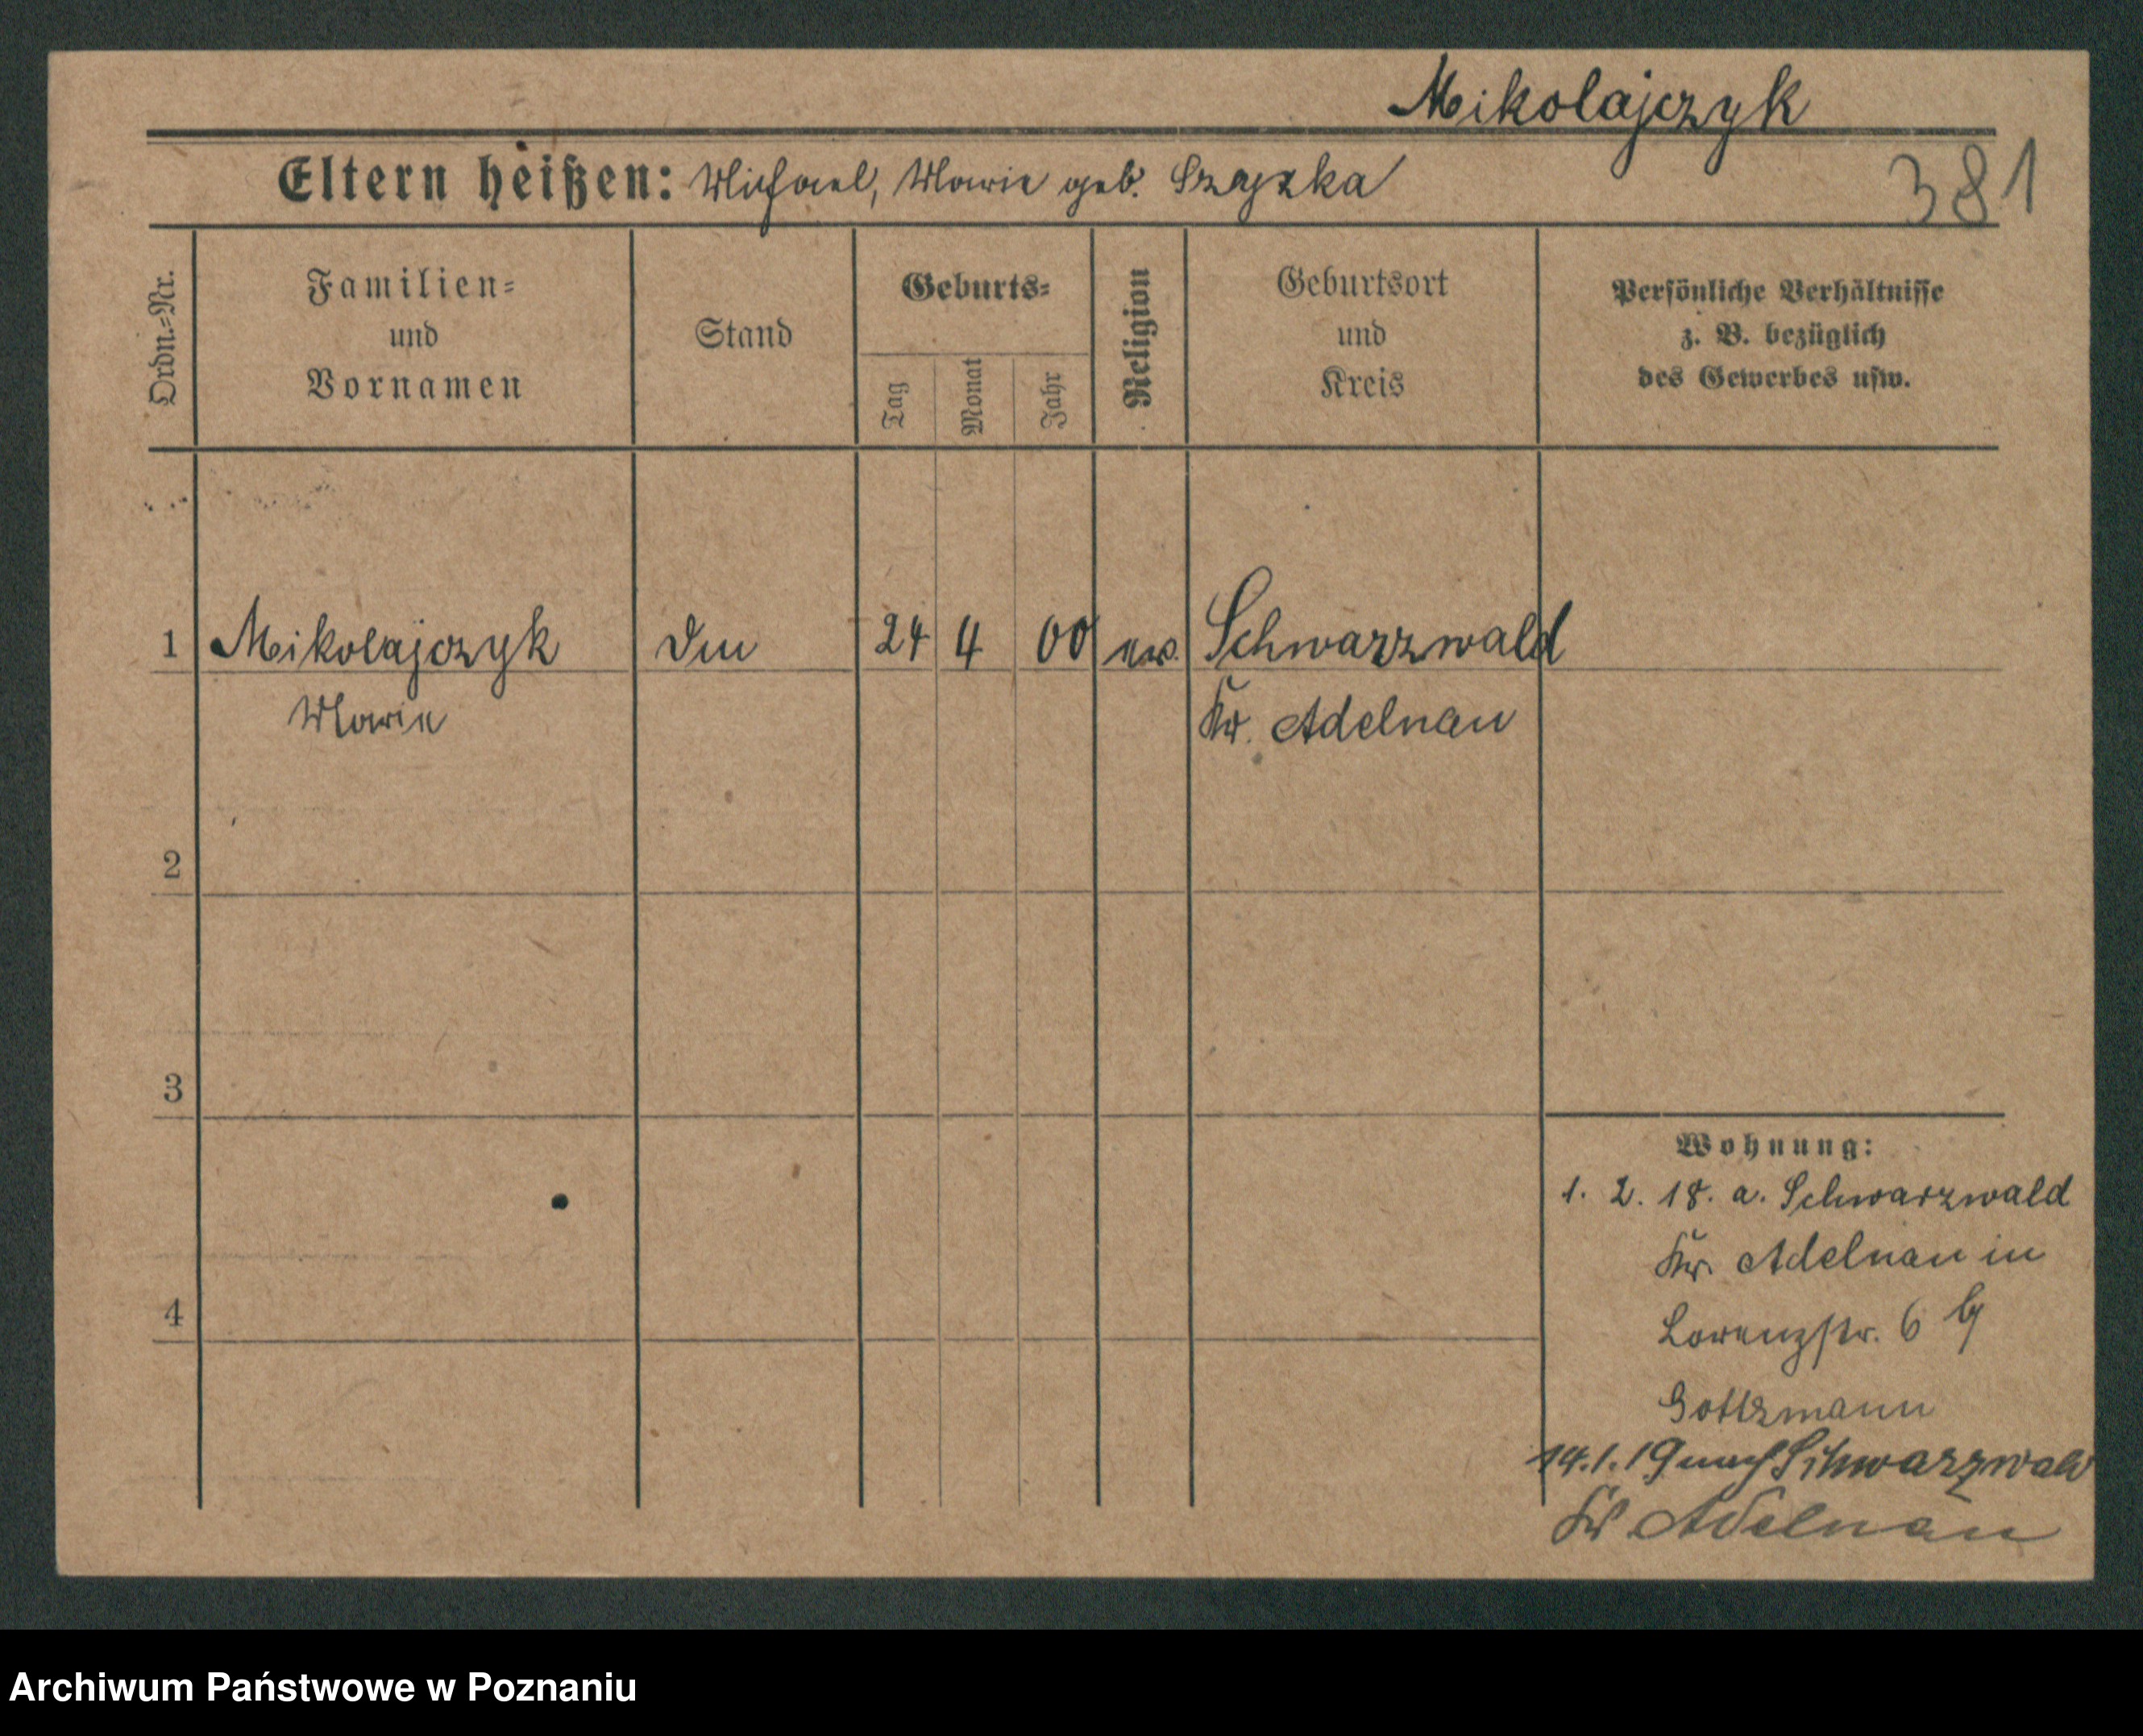 Mikolajczyk
381
Eltern heißen: Michael, Marie geb. Szczska
Ordn.=Nr.
Familien=
und
Vornamen
Stand
Geburts=
Tag
Monat
Jahr
Religion
Geburtsort
und
Kreis
Persönliche Verhältnisse
z. B. bezüglich
des Gewerbes usw.
1 Mikolajczyk 24 4 00 ev. Schwarzwald
Marie Kr. Adelnau
2
3
4
Wohnung:
1. 2. 18. a. Schwarzwald
Kr. Adelnau in
Lorenzstr. 6
Gottzmann
14.1.19 nach Schwarzwald
Kr Adelnau
Archiwum Państwowe w Poznaniu